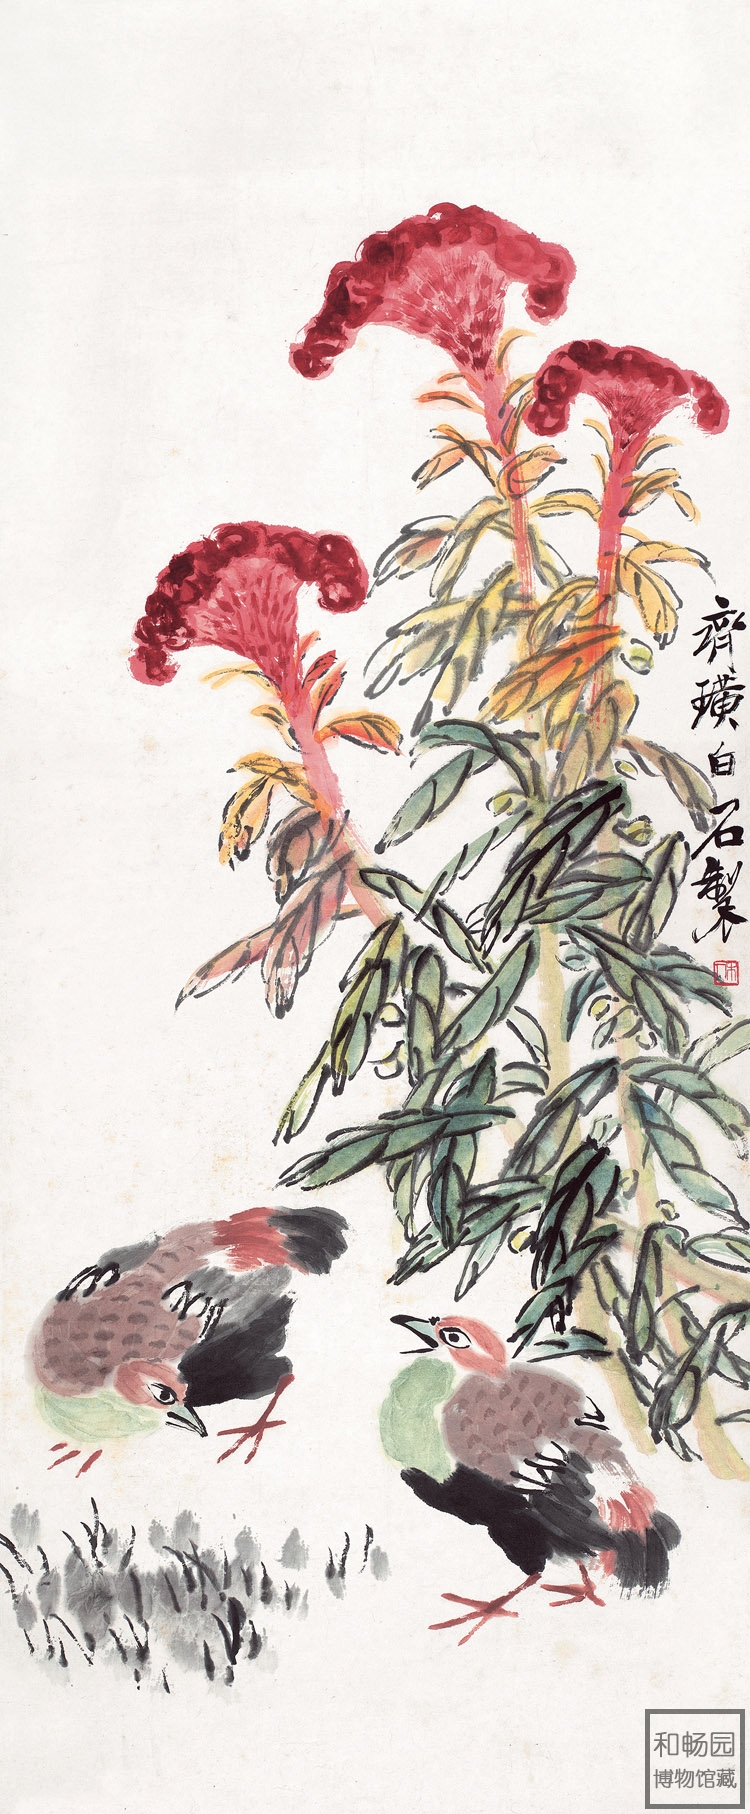 齊璜白石製
木人
和畅园
博物馆藏